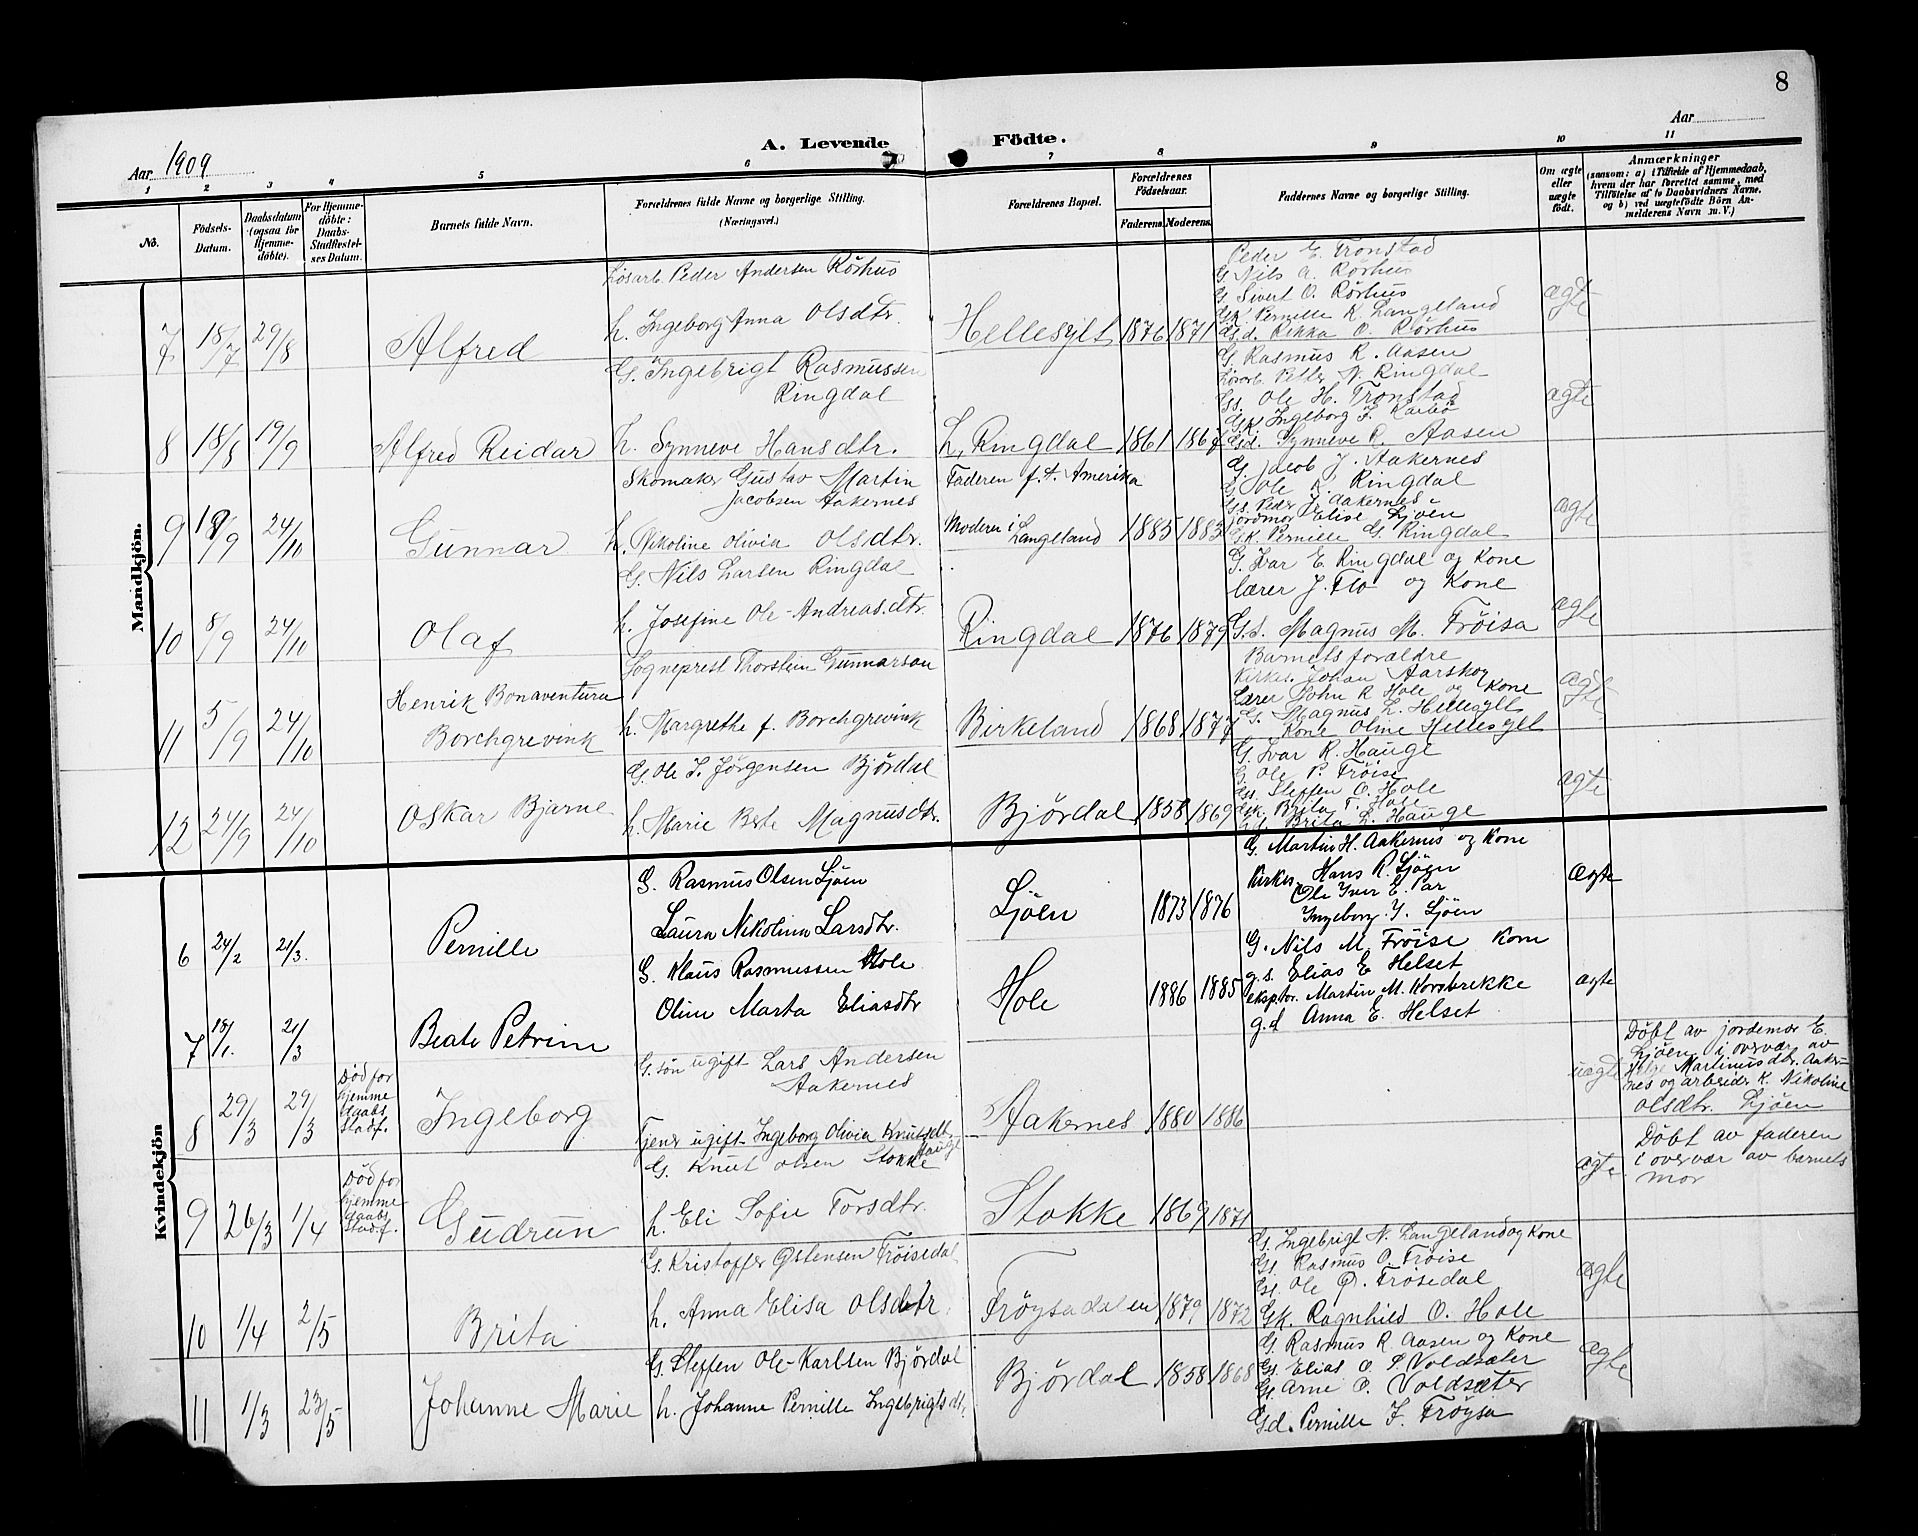 8
Aar 1909
A. Levende
Födte.
Aar
1 2 3 4 5 6 7 8 9 10 11
No.
Födsels-Datum.
Daabsdatum (ogsaa for Hjemme-döbte).
For Hjemme-döbte: Daabs-Stadfæstel-ses Datum.
Barnets fulde Navn.
Forældrenes fulde Navne og borgerlige Stilling.
(Næringsvei.)
Forældrenes Bopæl.
Forældrenes Födselsaar.
Faderens. Moderens.
Faddernes Navne og borgerlige Stilling.
Om ægte eller uægte født.
Anmærkninger
(saasom: a) i Tilfælde af Hjemmedaab, hvem der har forrettet samme, med Tilföielse af to Daabsvidners Navne. og b) ved uægtefödte Börn An-melderens Navn m. V.)
Mandkjön.
7 18/7 29/8 Alfred
Løsarb. Peder Andersen Rørhus
h. Ingeborg Anna Olsdtr.
Hellesylt 1876 1871
Peder E. Tronstad
G. Nils A. Rørhus
G. Sivert O. Rørhus
Gk. Pernille K. Langeland
Gd. Rikka O. Rørhus
ægte
8 18/8 19/9 Alfred Reidar
G. Ingebrigt Rasmussen
Ringdal
h. Synneve Hansdtr.
L. Ringdal 1861 1867
G. Rasmus R. Aasen
Løsarb. Petter N. Ringdal
Gs. Ole H. Tronstad
Gk. Ingeborg J. Karbø
Gd. Synneve R. Aasen
ægte
9 18/9 24/10 Gunnar
Skomaker Gustav Martin
Jacobsen Aakernes
h. Nikoline Olivia Olsdtr.
Faderen f.t. Amerika
Moderen i Langeland 1885 1883
G. Jacob J. Aakernes
G. Ole Ringdal
Gs. Peder J. Aakernes
Jordmor Elise Ljøen
Gk. Pernille G. Ringdal
ægte
10 8/9 24/10 Olaf
G. Nils Larsen Ringdal
h. Josefine Ole-Andreasdtr.
Ringdal 1876 1879
G. Ivar E. Ringdal og Kone
Lærer J. Flo og Kone
G.s. Magnus M. Frøisa
ægte
11 5/9 24/10 Henrik Bonaventura
Borchgrevink
Sogneprest Thorstein Gunnarson
h. Margrethe f. Borchgrevink
Birkeland 1868 1877
Barnets forældre
Kirkes. Johan Aarskog
Lærer John R. Hole og Kone
G. Magnus L. Hellesylt
Kone Oline Hellesylt
ægte
12 24/9 24/10 Oskar Bjarne
G. Ole J. Jørgensen Bjørdal
h. Marie Berte Magnusdtr.
Bjørdal 1858 1869
G. Ivar R. Hauge
G. Ole P. Frøise
Gs. Steffen O. Hole
Gk. Brita T. Hole
Gd. Brita L. Hauge
ægte
Kvindekjön
6 24/2 21/3. Pernille
G. Rasmus Olsen Ljøen
Laura Nikolina Larsdtr.
Ljøen 1873 1876
G. Martin H. Aakernes og Kone
Kirkes. Hans R. Ljøen
Ole Iver E. Par
Ingeborg J. Ljøen
ægte
7 18/1. 21/3 Beate Petrine
G. Klaus Rasmussen Hole
Oline Marta Eliasdtr
Hole 1886 1885
G. Nils M. Frøise Kone
g.s. Elias E Helset
eksp.tør. Martin M. Korsbrekke
g.d Anna E. Helset
ægte
8 29/3 29/3 Død for hjemme daabs Stadf. Ingeborg
G. søn ugift Lars Andersen
Aakernes
Tjener ugift Ingeborg Olivia Knutsdtr
Hauge
Aakernes 1880 1886
uægte
Døbt av jordemor E.
Ljøen i overvær av
Martinusdtr. Aaker-
nes og arbeider K. Nikoline
Olsdtr. Ljøen
9 26/3 1/4 Død for hjemme daabs Stadf. Gudrun
G. Knut Olsen Stokke
h. Eli Sofie Torsdtr.
Stokke 1869 1871
ægte
Døbt av faderen
i overvær av barnets
mor
10 1/4 2/5 Brita
G. Kristoffer Østensen Frøisedal
h. Anna Elisa Olsdtr.
Frøysadalen 1879 1872
G. Ingebrigt N. Langeland og Kone
Gs. Rasmus O. Frøise
Gs. Ole Ø. Frøsedal
Gk. Ragnhild O. Hole
ægte
11 1/3 23/5 Johanne Marie
G. Steffen Ole-Karlsen Bjørdal
h. Johanne Pernille Ingebrigtsdt.
Bjørdal 1858 1868
G. Rasmus R. Aasen og Kone
Gs. Elias O. S. Voldsæter
Gs. Arne O. Voldsæter
Gd. Pernille J. Frøysa
ægte